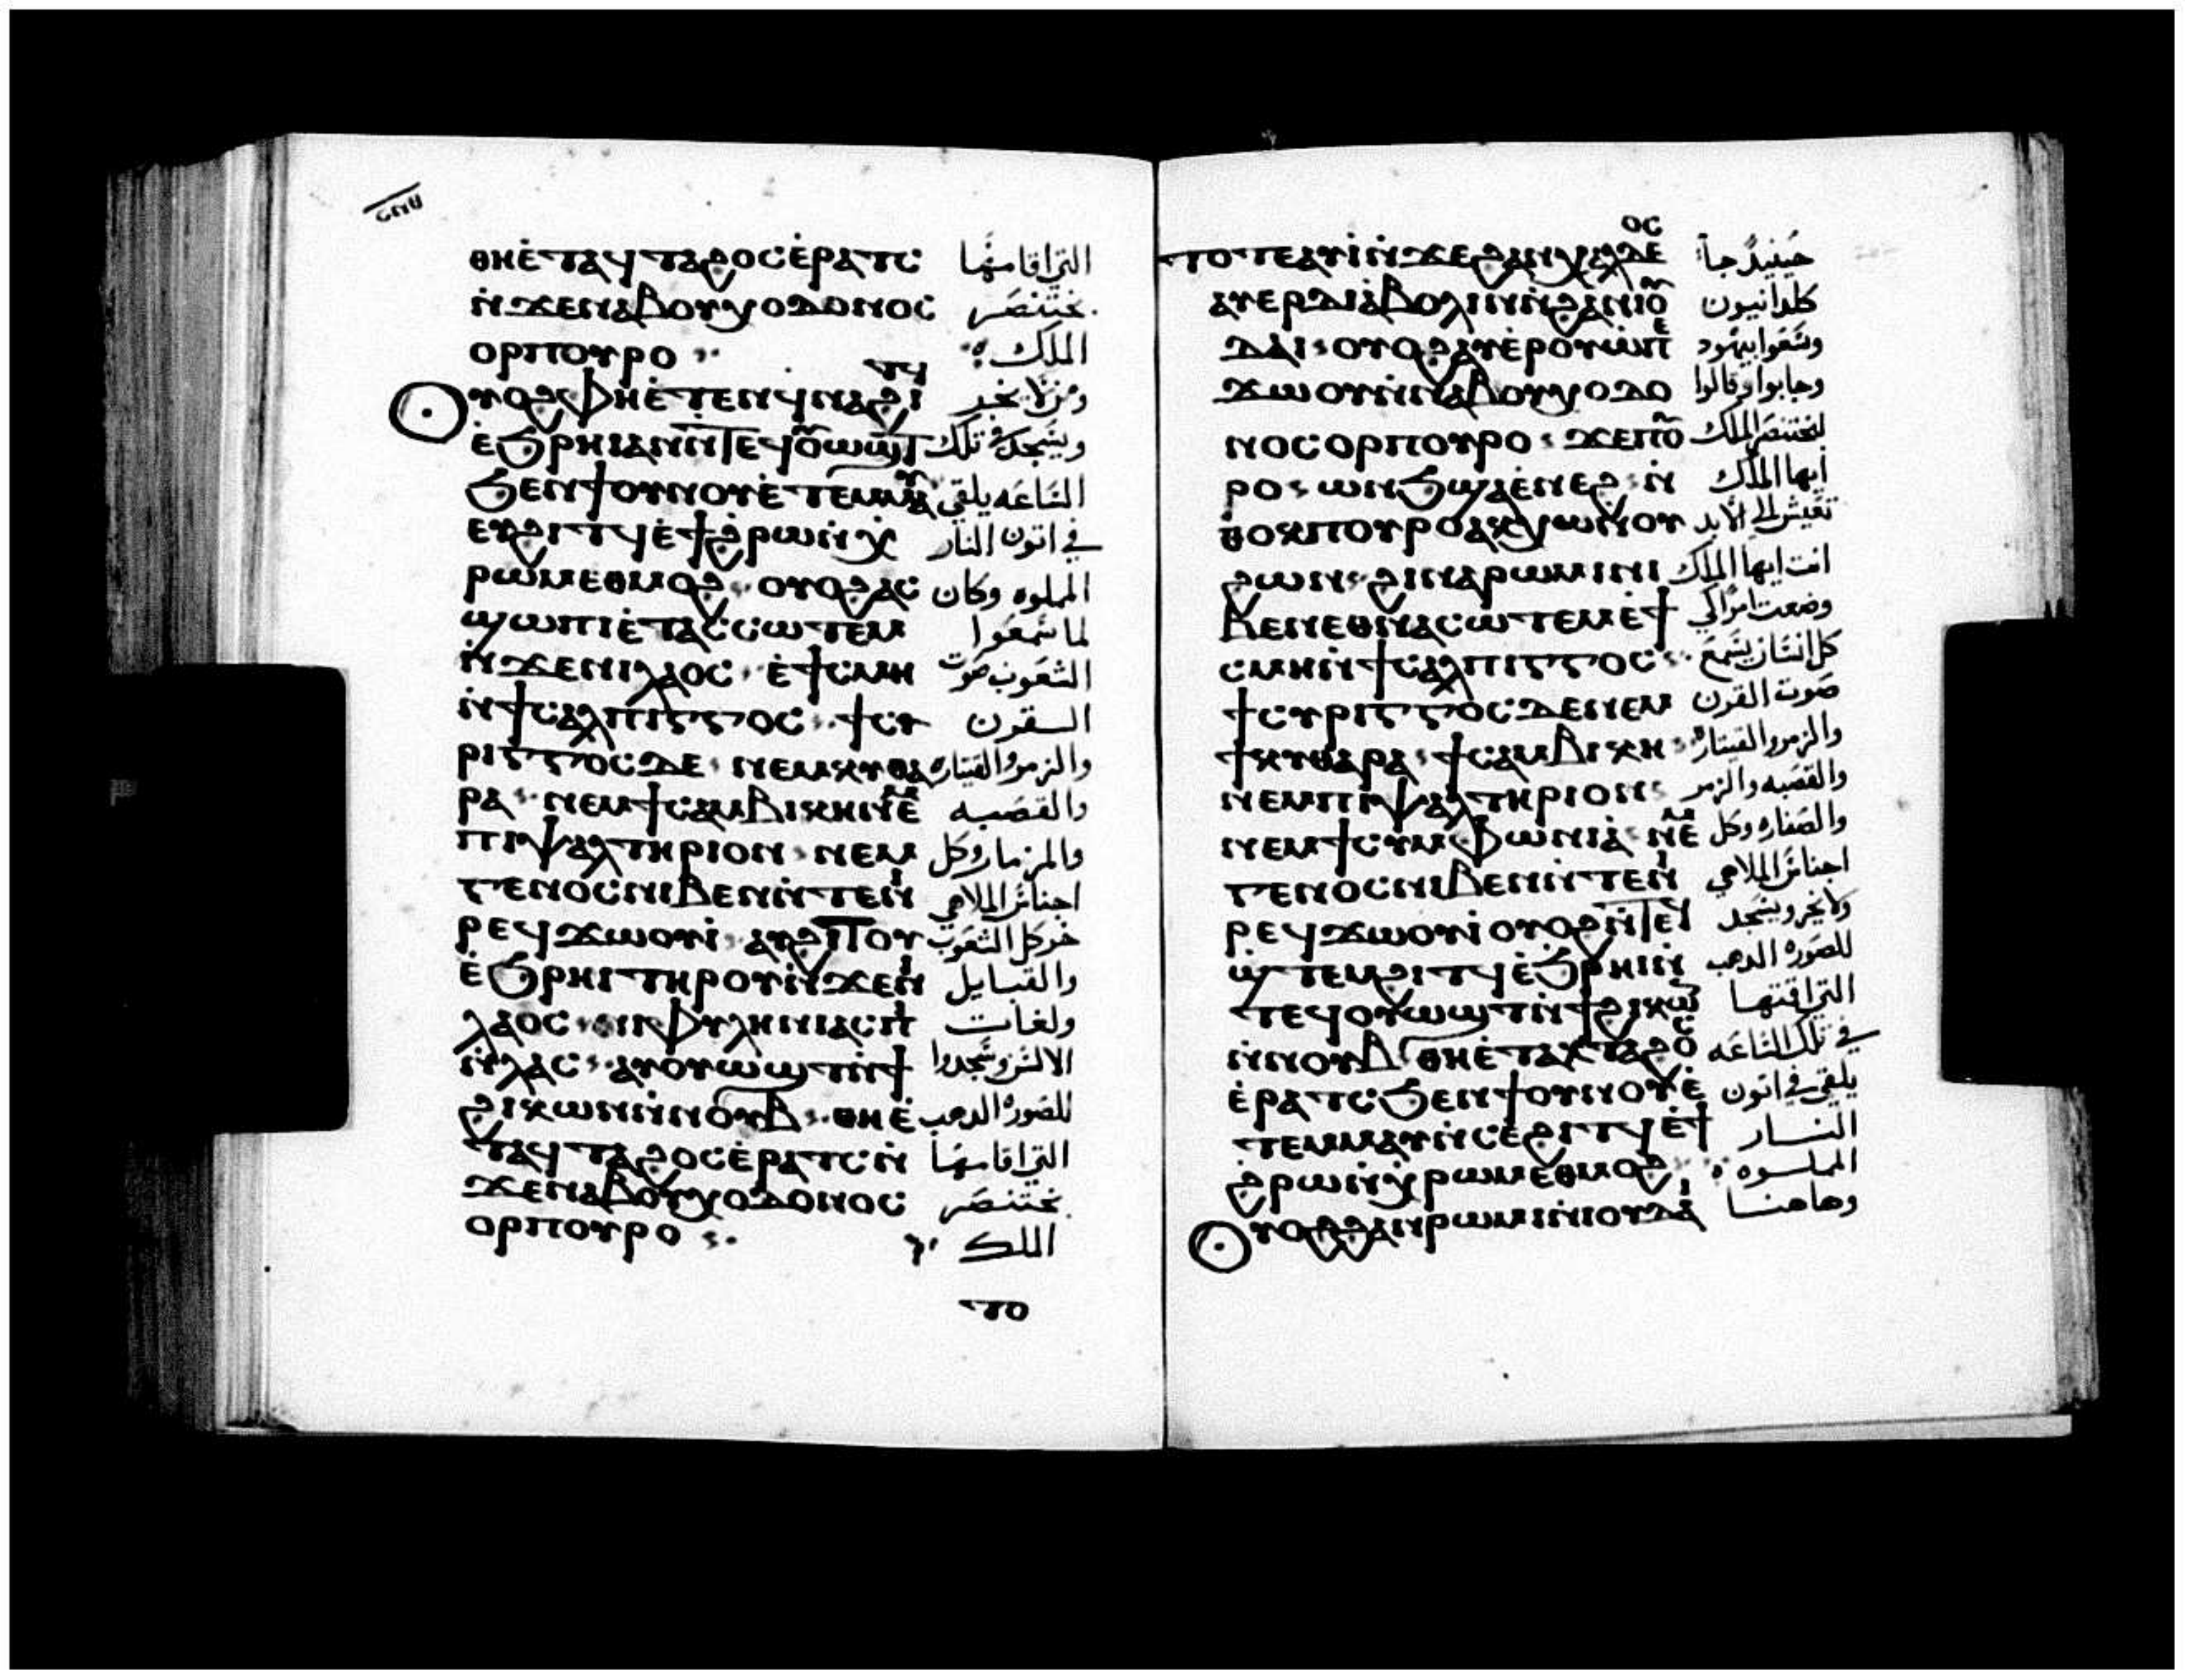 ⲑⲏⲉ̀ⲧⲁϥⲧⲁϩⲟⲥⲉ̀ⲣⲁⲧⲥ التي اقامها
ⲛ̀ϫⲉⲛⲁⲃⲟⲩⲭⲟⲇⲟⲛⲟⲥ بختنصر
ⲟⲣⲡⲟⲩⲣⲟ الملك
ⲟⲩⲟϩⲫⲏⲉ̀ⲧⲉⲛϥⲛⲁϩⲓⲧϥ ومن لا يخر
ⲉ̀ϧⲣⲏⲓⲁⲛⲛ̀ⲧⲉϥⲟⲩⲱϣⲧ ويسجد في تلك
ϧⲉⲛϯⲟⲩⲛⲟⲩⲉ̀ⲧⲉⲙⲙⲁⲩ الساعه يلقى
ⲉⲩϩⲓⲧϥⲉ̀ϯϩⲣⲱⲛ̀ⲭ في اتون النار
ⲣⲱⲙⲉⲑⲙⲟϩ ⲟⲩⲟϩⲁⲥ المملوه وكان
ϣⲱⲡⲓⲉ̀ⲧⲁⲥⲥⲱⲧⲉⲙ لما سمعوا
ⲛ̀ϫⲉⲛⲓⲗⲁⲟⲥ ⲉ̀ϯⲥⲙⲏ الشعوب صوت
ⲛ̀ϯⲥⲁⲗⲡⲓⲅⲅⲟⲥ ϯⲥⲩ السقون
ⲣⲓⲅⲅⲟⲥⲇⲉ ⲛⲉⲙⲕⲩⲑⲁ والزمر والقيتاره
ⲣⲁ ⲛⲉⲙϯⲥⲁⲙⲃⲓⲕⲏⲛⲉⲙ والقصبه
ⲡⲓⲯⲁⲗⲧⲏⲣⲓⲟⲛ ⲛⲉⲙ والمزمار وكل
ⲅⲉⲛⲟⲥⲛⲓⲃⲉⲛⲛ̀ⲧⲉⲛⲓ اجناس الملاهي
ⲣⲉϥϫⲱⲟⲩⲓ̀ ⲁⲩϩⲓⲧⲟⲩ خر كل الشعوب
ⲉ̀ϧⲣⲏⲓⲧⲏⲣⲟⲩⲛ̀ϫⲉⲛⲓ والقبايل
ⲗⲁⲟⲥ ⲛⲓⲫⲩⲗⲏⲛⲓⲁⲥⲡⲓ ولغات
ⲛ̀ⲗⲁⲥ ⲁⲩⲟⲩⲱϣⲧⲛ̀ϯ الالسن وسجدوا
ϩⲓⲕⲱⲛⲛ̀ⲛⲟⲩⲃ ⲑⲏⲉ̀ للصوره الدهب
ⲧⲁϥⲧⲁϩⲟⲥⲉ̀ⲣⲁⲧⲥⲛ̀ التي اقامها
ϫⲉⲛⲁⲃⲟⲩⲭⲟⲇⲟⲛⲟⲥ بختنصر
ⲟⲣⲡⲟⲩⲣⲟ الملك
ⲧⲟ
ⲧⲟⲧⲉⲁⲩⲓ̀ⲛ̀ϫⲉϩⲁⲛⲭⲁⲗⲇⲉⲟⲥ حينيد جا
ⲁⲩⲉⲣⲇⲓⲁ̀ⲃⲟⲗⲓⲛⲛ̀ϩⲁⲛⲓⲟⲩ كلدانيون
ⲇⲁⲓ ⲟⲩⲟϩⲁⲩⲉ̀ⲣⲟⲩⲱ̀ⲡⲉ وسعوا بيهود
ϫⲱⲟⲩⲛ̀ⲛⲁⲃⲟⲩⲭⲟⲇⲟ وجابوا وقالوا
ⲛⲟⲥⲟⲣⲡⲟⲩⲣⲟ ϫⲉⲡⲟⲩ لبختنصر الملك
ⲣⲟ ⲱⲛϧϣⲁⲉ̀ⲛⲉϩ ⲛ̀ ايها الملك
ⲑⲟⲕⲡⲟⲩⲣⲟⲁⲕⲭⲱⲛ̀ⲟⲩ تعيش الى الابد
ϩⲱⲛ ϩⲓⲛⲁⲣⲱⲙⲓⲛⲓ انت ايها الملك
ⲃⲉⲛⲉⲑⲛⲁⲥⲱⲧⲉⲙⲉ̀ϯ وضعت امرا لكي
ⲥⲙⲏⲛ̀ϯⲥⲁⲗⲡⲓⲅⲅⲟⲥ كل انسان يسمع
ϯⲥⲩⲣⲓⲅⲅⲟⲥⲇⲉⲛⲉⲙ صوت القرن
ϯⲕⲩⲑⲁⲣⲁ ϯⲥⲁⲙⲃⲓⲕⲏ والزمر والقيتاره
ⲛⲉⲙⲡⲓⲯⲁⲗⲧⲏⲣⲓⲟⲛ والقصبه والزمر
ⲛⲉⲙϯⲥⲩⲙⲫⲱⲛⲓⲁ̀ ⲛⲉⲙ والصفاره وكل
ⲅⲉⲛⲟⲥⲛⲓⲃⲉⲛⲛ̀ⲧⲉⲛⲓ اجناس الملاهي
ⲣⲉϥϫⲱⲟⲩⲓ̀ⲟⲩⲟϩⲛ̀ⲧⲉϥ ولا يخر ويسجد
ϣ̀ⲧⲉⲙϩⲓⲧϥⲉ̀ϧⲣⲏⲓⲛ̀ للصوره الدهب
ⲧⲉϥⲟⲩⲱϣⲧⲛ̀ϯϩⲓⲕⲱⲛ التي اقمتها
ⲛ̀ⲛⲟⲩⲃ ⲑⲏⲉ̀ⲧⲁⲕⲧⲁϩⲟⲥ في تلك الساعه
ⲉ̀ⲣⲁⲧⲥϧⲉⲛϯⲟⲩⲛⲟⲩⲉ̀ يلقى في اتون
ⲧⲉⲙⲙⲁⲩⲛ̀ⲥⲉϩⲓⲧϥⲉ̀ϯ النار
ϩⲣⲱⲛ̀ⲭⲣⲱⲙⲉⲑⲙⲟϩ المملوه
ⲟⲩⲟϩϩⲁⲛⲣⲱⲙⲓⲛ̀ⲓⲟⲩⲇⲁⲓ وهاهنا